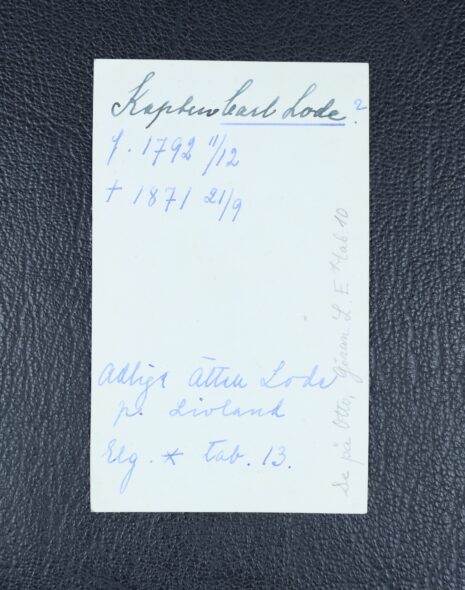 Kapten Carl Lode ?
f. 1792 11/12
† 1871 21/9
Adliga Ätten Lode
p. Livland
Elg. * tab. 13.
Se på Otto, Göran L. E. tab 10